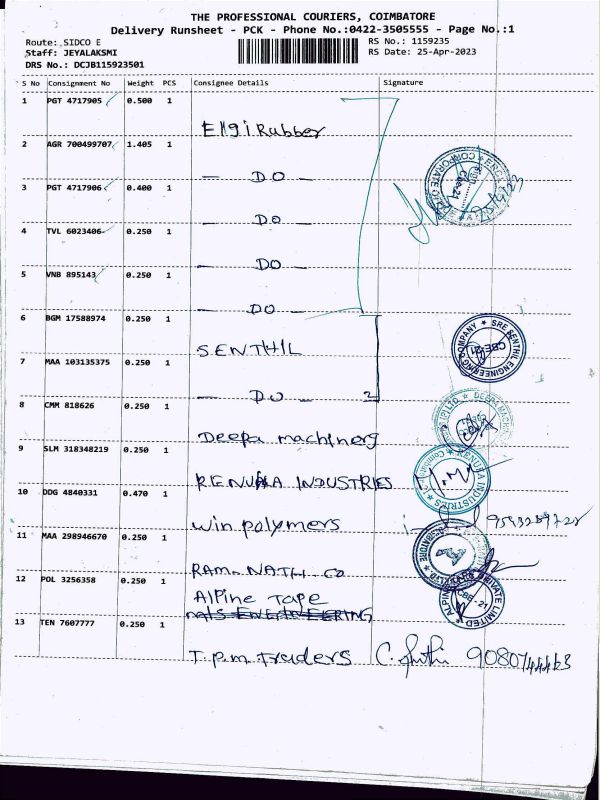 THE PROFESSIONAL COURIERS, COIMBATORE
Delivery Runsheet - PCK - Phone No.:0422-3505555 - Page No.:1
Route: SIDCO E
RS No.: 1159235
Staff: JEYALAKSMI
RS Date: 25-Apr-2023
DRS No.: DCJB115923501
S No Consignment No Weight PCS Consignee Details Signature
1 PGT 4717905 0.500 1
Elgi Rubber
2 AGR 700499707 1.405 1
— DO —
3 PGT 4717906 0.400 1
— DO —
4 TVL 6023406 0.250 1
— DO —
5 VNB 895143 0.250 1
— DO —
6 BGM 17588974 0.250 1
SENTHIL
SRE SENTHIL ENGINEERING COMPANY
CBE-21
7 MAA 103135375 0.250 1
— DO — 2
8 CMM 818626 0.250 1
Deepa machinery
9 SLM 318348219 0.250 1
RENUKA INDUSTRIES
RENUKA INDUSTRIES
10 DDG 4840331 0.470 1
Win polymers
11 MAA 298946670 0.250 1
RAM. NATH. CO
12 POL 3256358 0.250 1
Alpine Tape
ALPINE TAPES PRIVATE LIMITED
CBE - 21
13 TEN 7607777 0.250 1
T.p.m. Traders